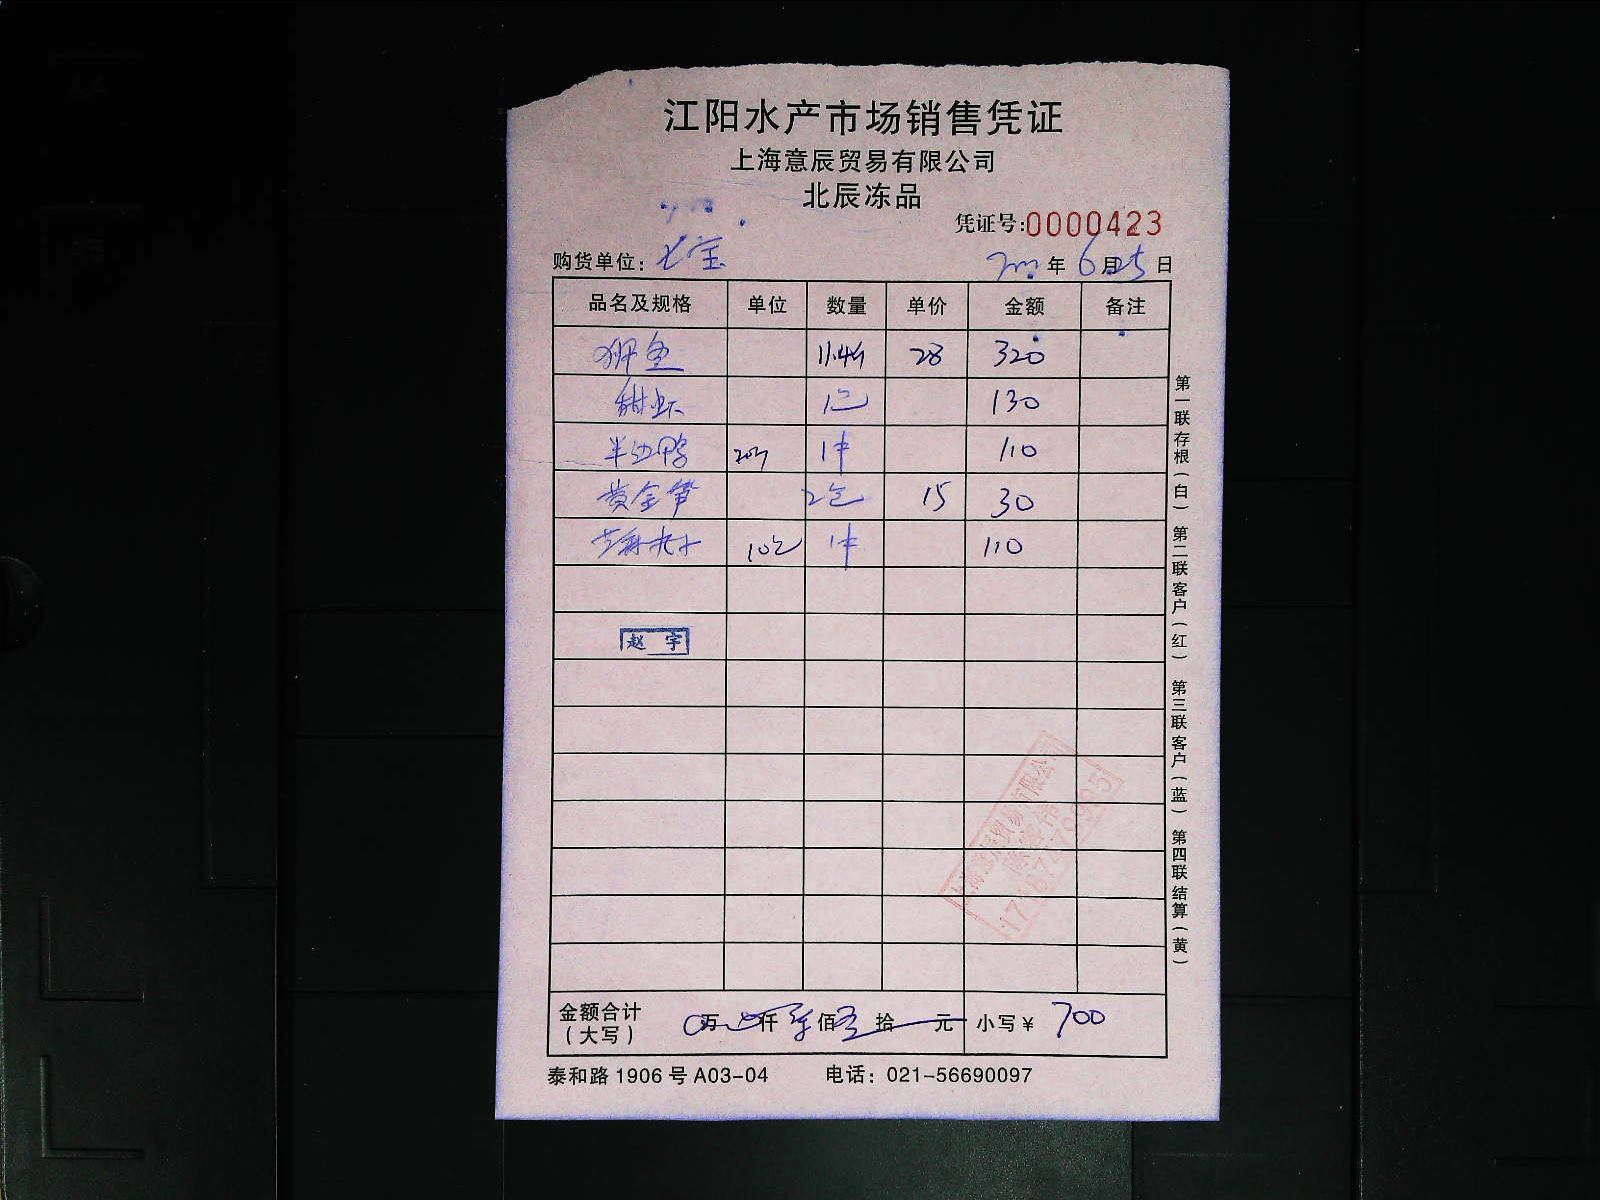 江阳水产市场销售凭证
上海意辰贸易有限公司
北辰冻品
凭证号:0000423
购货单位: 七宝 年 6月25日
品名及规格 单位 数量 单价 金额 备注
鱼 11.4斤 28 320
甜虾 1包 130
半边鸭 20个 1件 110
黄金笋 2包 15 30
芝麻 10包 1件 110
赵宇
金额合计
(大写) 0万 0仟 佰 拾 元 小写¥ 700
泰和路1906号A03-04 电话: 021-56690097
第一联存根(白) 第二联客户(红) 第三联客户(蓝) 第四联结算(黄)